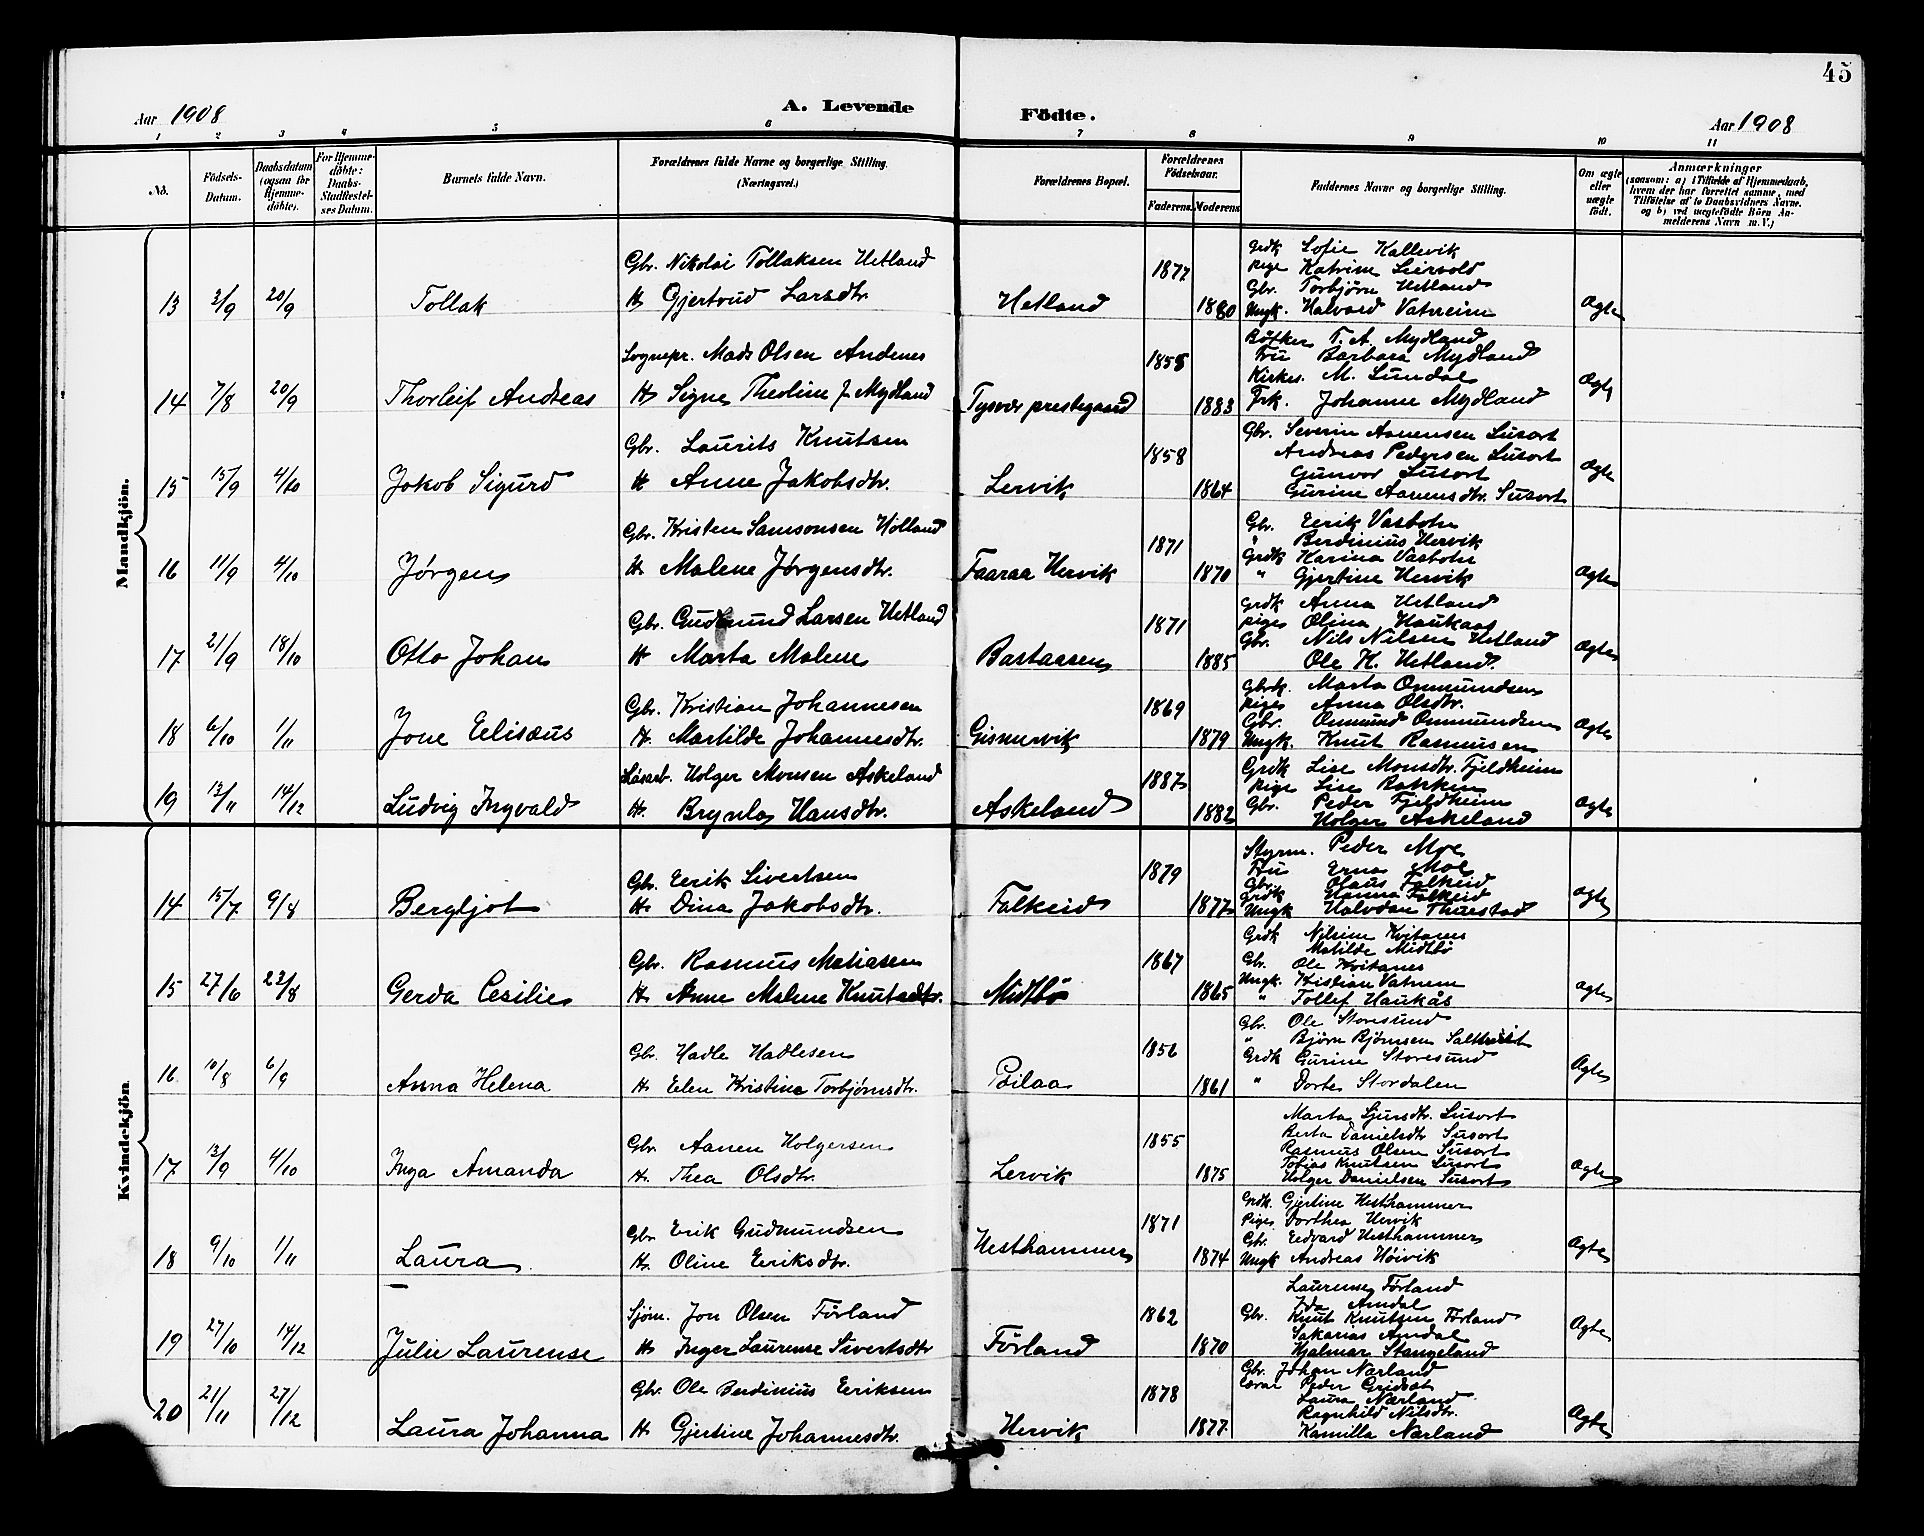 45
Aar 1908
A. Levende Födte.
Aar 1908
1 2 3 4 5 6 7 8 9 10 11
No.
Födsels-Datum.
Daabsdatum (ogsaa for Hjemme-döbte).
For Hjemme-döbte: Daabs-Stadfæstel-ses Datum.
Barnets fulde Navn.
Forældrenes fulde Navne og borgerlige Stilling. (Næringsvei.)
Forældrenes Bopæl.
Forældrenes Födselsaar.
Faderens. Moderens.
Faddernes Navne og borgerlige Stilling.
Om ægte eller uægte født.
Anmærkninger
(saasom: a) i Tilfælde af Hjemmedaab, hvem der har forrettet samme, med Tilföielse af to Daabsvidners Navne. og b) ved uægtefödte Börn An-melderens Navn m. V.)
Mandkjön.
13 2/9 20/9 Tollak
Gbr. Nikolai Tollaksen Hetland
H. Gjertrud Larsdtr.
Hetland 1877 1880
Grdk Sofie Kallevik
Pige Katrine Leirvold
Gbr. Torbjørn Hetland
Ungk. Halvard Vatneim
Ægte
14 7/8 20/9 Thorleif Andreas
Sognepr. Mads Olsen Andenes
H. Signe Theoline f. Mydland
Tysvær prestegaard 1858 1883
Bøtker T. A. Mydland
Fru Barbara Mydland
Kirkes. M. Lundal
Frk. Johanne Mydland
Ægte
15 15/9 4/10 Jakob Sigurd
Gbr. Laurits Knutsen
H. Anne Jakobsdtr.
Lervik 1858 1864
Gbr. Severin Aanensen Susort
Andreas Pedersen Susort
Gunvor Susort
Gurine Aanensdtr. Susort
Ægte
16 11/9 4/10 Jørgen
Gbr. Kristen Samsonsen Høiland
H. Malene Jørgensdtr.
Faaraa Hervik 1871 1870
Gbr. Eerik Vasbotn
" Berdinius Hervik
Grdk Karina Vasbotn
" Gjertine Hervik
Ægte
17 21/9 18/10 Otto Johan
Gbr. Gudmund Larsen Hetland
H. Marta Malene
Bastaasen 1871 1885
Grdk Anna Hetland
Pige Olina Haukaas
Gbr. Nils Nilsen Hetland
Ole K. Hetland.
Ægte
18 6/10 1/11 Jone Eelisæus
Gbr. Kristian Johannesen
H. Martilde Johannesdtr.
Gismervik 1869 1879
Gbrk. Marta Onmundsen
Pige Anna Olsdtr.
Gbr. Onmund Onmundsen
Ungk. Knut Rasmusen
Ægte
19 13/11 14/12 Ludvig Ingvald
Løsarb. Holger Monsen Askeland
H. Brynla Hansdtr.
Askeland 1887 1882
Grdk Lise Monsdtr. Fjeldheim
Pige Lise Rakken
Gbr. Peder Fjeldheim
Holger Askeland
Ægte
Kvindekjön.
14 15/7 9/8 Bergljot
Gbr. Eerik Sivertsen
H. Dina Jakobsdtr.
Falkeid 1879 1877
Styrm. Peder Moe
Fru Erna Moe
Gbr. Olaus Falkeid
Grdk Hanna Falkeid
Ungk Halvdan Thuestad
Ægte
15 27/6 23/8 Gerda Cesilie
Gbr. Rasmus Matiasen
H. Anne Malene Knutsdtr.
Midtbø 1867 1865
Grdk Nilsine Kvitanes
Matilde Midtbø
Gbr. Ole Kvitanes
Ungk. Kristian Vatnem
" Tollef Haukås
Ægte
16 10/8 6/9 Anna Helena
Gbr. Hadle Hadlesen
H. Eelen Kristine Torbjørnsdtr.
Beilaa 1856 1861
Gbr. Ole Storesund
" Bjørn Bjørnsen
Grdk Gurine Storesund
" Dorte Stordalen
Ægte
17 13/9 4/10 Inga Amanda
Gbr. Aanen Holgersen
H. Thea Olsdtr.
Lervik 1855 1875
Marta Sjursdtr. Susort
Berta Danielsdtr Susort
Rasmus Olsen Susort
Tobias Knutsen Susort
Holger Danielsen Susort
Ægte
18 9/10 1/11 Laura
Gbr Erik Gudmundsen
H. Oline Eeriksdtr.
Hesthammer 1871 1874
Grdk. Gjertine Hesthammer
Pige Dorthea Hervik
Gbr. Eedvard Hesthammer
Ungk Andreas Høivik
Ægte
19 27/10 14/12 Julie Laurense
Sjøm. Jon Olsen Førland
H. Inger Laurense Sivertsdtr
Førland 1862 1870
Laurense Førland
Ida Amdal
Gbr. Knut Knutsen Førland
Sakarias Amdal
Hjalmar Stangeland
Ægte
20 21/11 27/12 Laura Johanna
Gbr Ole Berdinius Eeriksen
H. Gjertine Johannesdtr.
Hervik 1878 1877.
Gbr. Johan Nærland
Peder
Laura Nærland
Ragnhild Nilsdtr.
Kamilla Nærland
Ægte